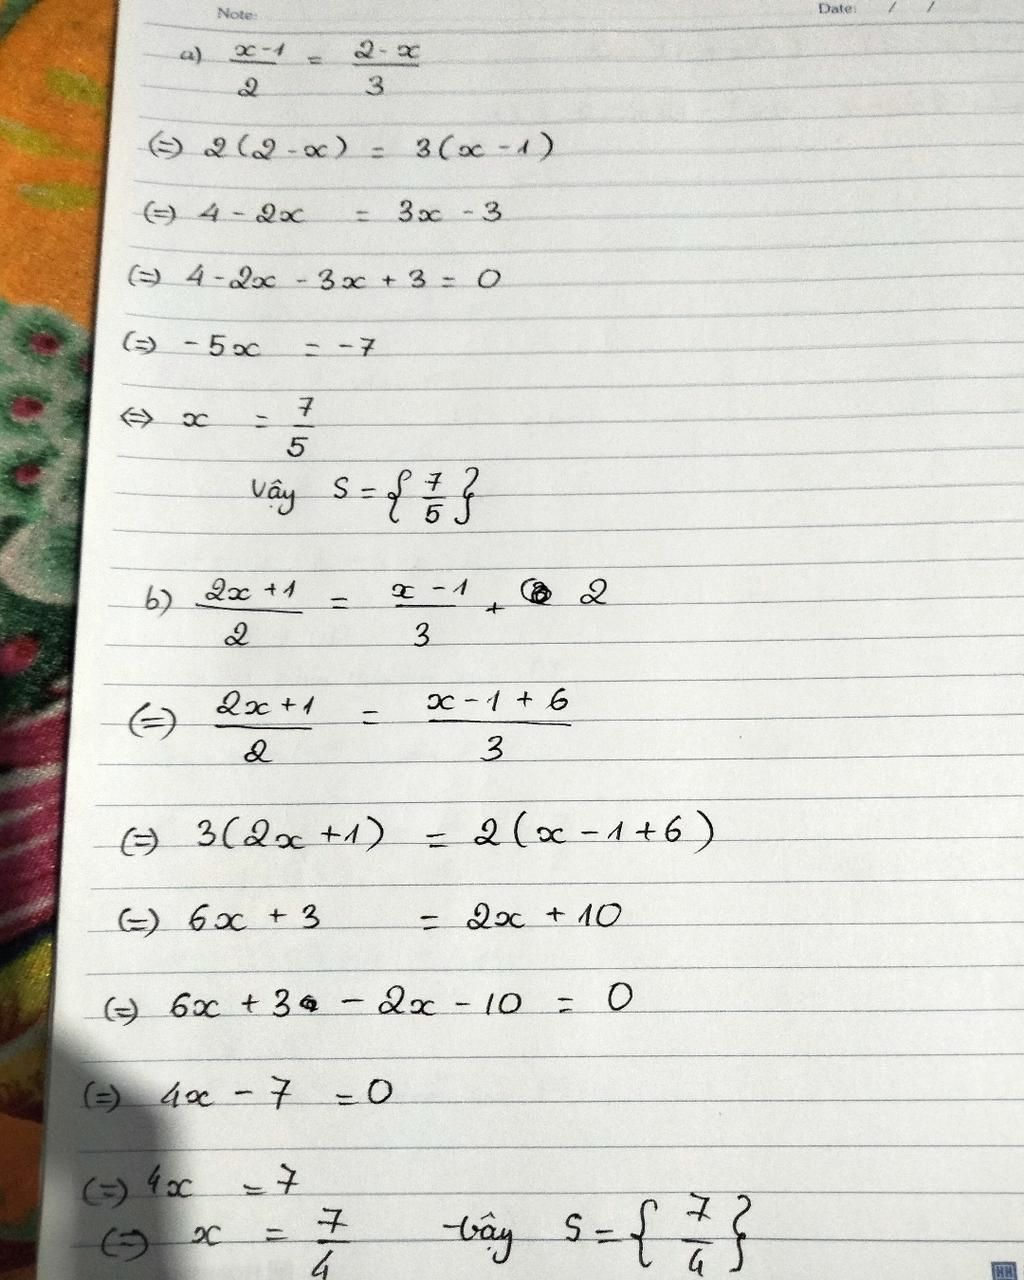 Note: Date: / /
a) \frac{x-1}{2} = \frac{2-x}{3}
(=) 2(2-x) = 3(x-1)
(=) 4-2x = 3x-3
(=) 4-2x-3x+3=0
(=) -5x = -7
<=> x = \frac{7}{5}
Vậy S={\frac{7}{5}}
b) \frac{2x+1}{2} = \frac{x-1}{3} + 2
(=) \frac{2x+1}{2} = \frac{x-1+6}{3}
(=) 3(2x+1) = 2(x-1+6)
(=) 6x+3 = 2x+10
(=) 6x+3-2x-10 = 0
(=) 4x-7 =0
(=) 4x =7
(=) x = \frac{7}{4} Vậy S={\frac{7}{4}}